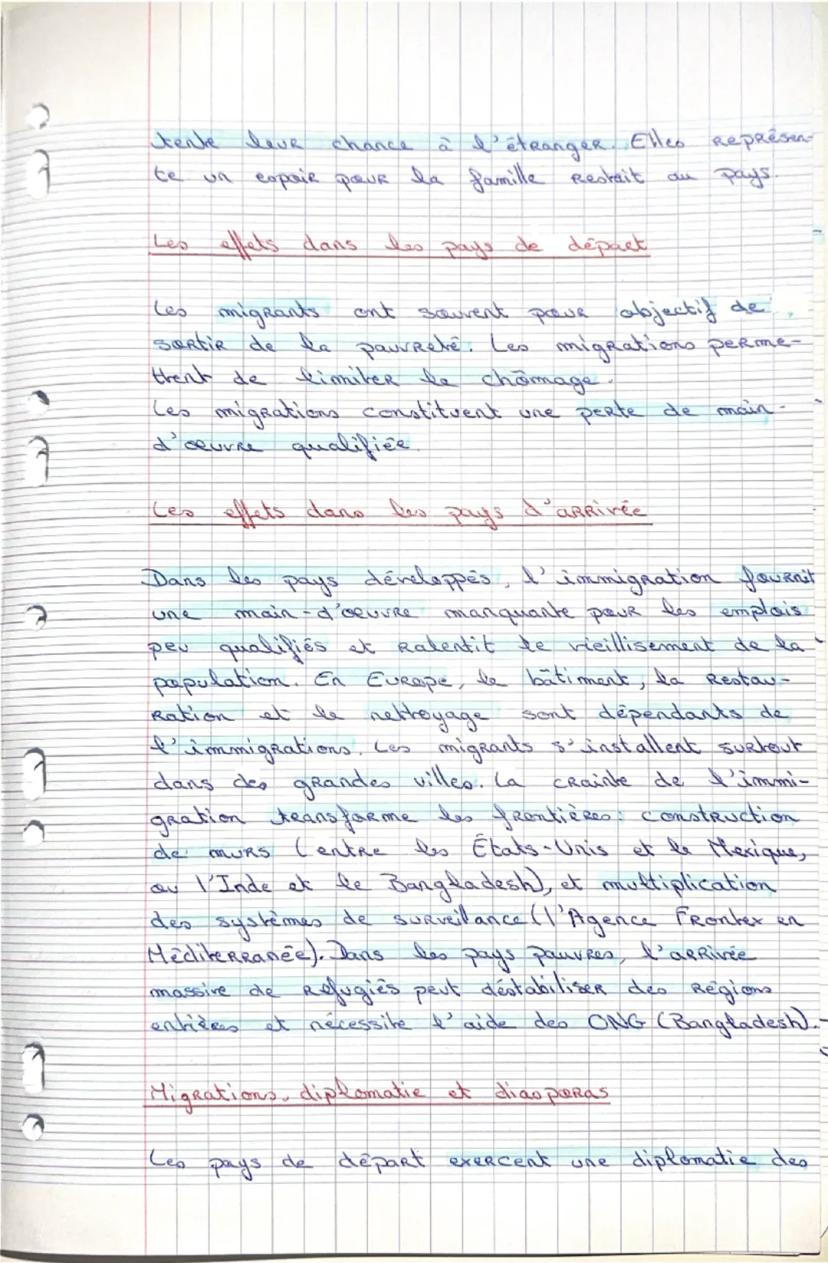 tente leur chance à l'étranger. Elles représen-
te un espoir pour la famille restait au pays.
Les effets dans les pays de départ
Les migrants ont souvent pour objectif de
sortir de la pauvreté. Les migrations perme-
ttrent de limiter le chômage.
Les migrations constituent une perte de main-
d'œuvre qualifiée.
Les effets dans les pays d'arrivée
Dans les pays développés, l'immigration fournit
une main-d'œuvre manquante pour les emplois
peu qualifiés et ralentit le vieillisement de la
population. En Europe, le bâtiment, la restau-
ration et le nettoyage sont dépendants de
l'immigrations. Les migrants s'installent surtout
dans des grandes villes. La crainte de l'immi-
gration transforme les frontières: construction
de murs (entre les États-Unis et le Mexique,
ou l'Inde et le Bangladesh), et multiplication
des systèmes de surveillance (l'Agence Frontex en
Méditerranée). Dans les pays pauvres, l'arrivée
massive de réfugiés peut déstabiliser des régions
entières et nécessite l'aide des ONG (Bangladesh).
Migrations, diplomatie et diasporas
Les pays de départ exercent une diplomatie des